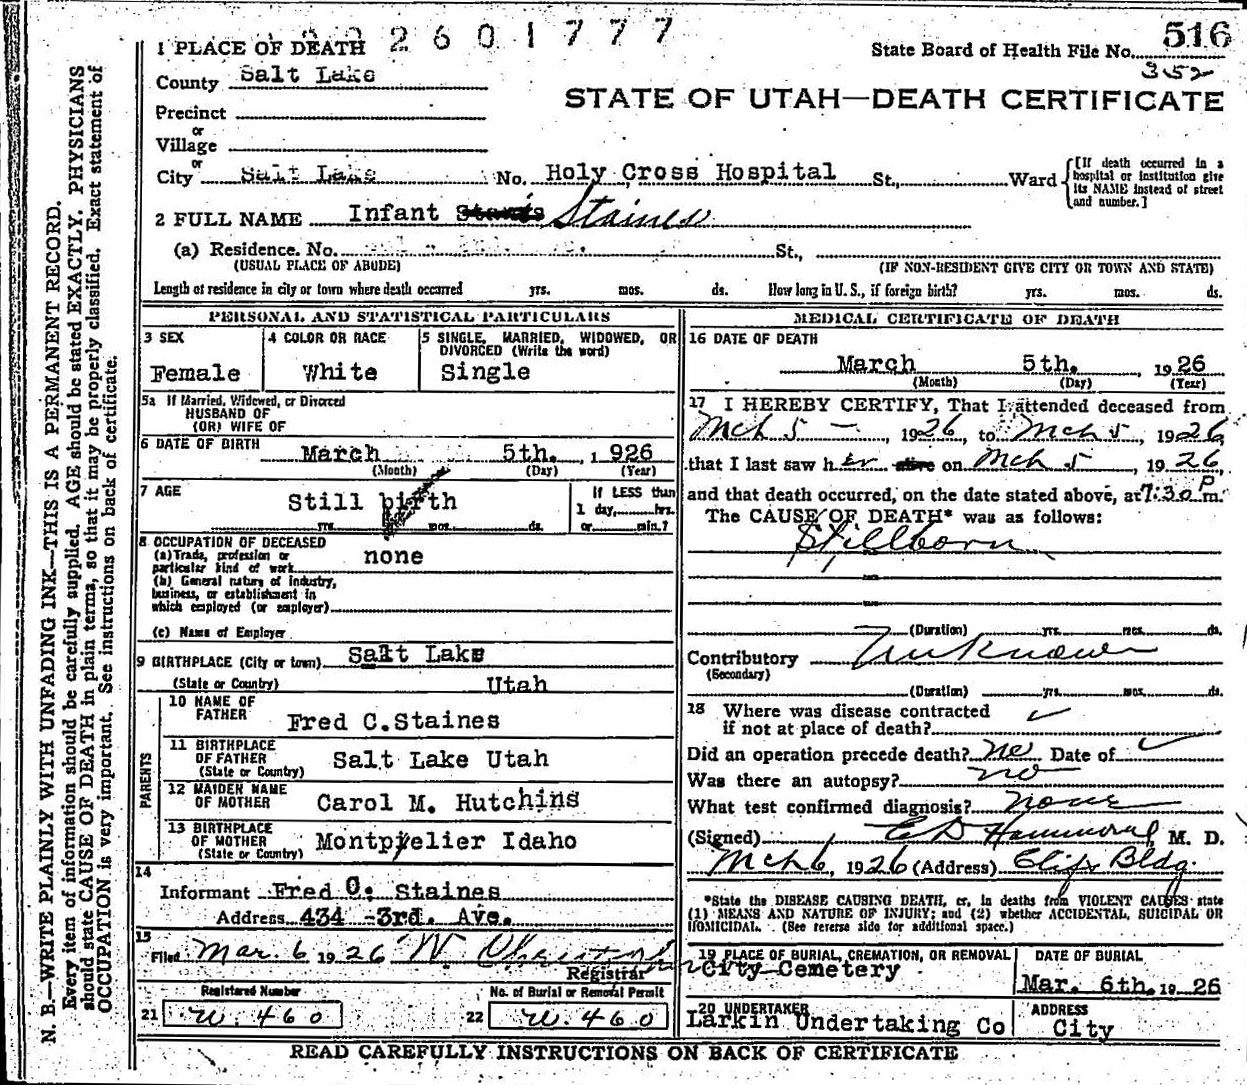 2 6 0 1 7 7 7
516
State Board of Health File No.
352
1 PLACE OF DEATH
County Salt Lake
STATE OF UTAH—DEATH CERTIFICATE
Precinct
or
Village
or
City Salt Lake No. Holy Cross Hospital St., Ward
[If death occurred in a hospital or institution give its NAME instead of street and number.]
2 FULL NAME Infant Staines
(a) Residence. No. St.,
(USUAL PLACE OF ABODE) (IF NON-RESIDENT GIVE CITY OR TOWN AND STATE)
Length of residence in city or town where death occurred yrs. mos. ds. How long in U. S., if foreign birth? yrs. mos. ds.
PERSONAL AND STATISTICAL PARTICULARS
3 SEX
Female
4 COLOR OR RACE
White
5 SINGLE, MARRIED, WIDOWED, OR
DIVORCED (Write the word)
Single
5a If Married, Widowed, or Divorced
HUSBAND OF
(OR) WIFE OF
6 DATE OF BIRTH
March 5th. , 1 926
(Month) (Day) (Year)
7 AGE
Still birth
yrs. mos. ds.
If LESS than
1 day, hrs.
or min.?
8 OCCUPATION OF DECEASED
(a) Trade, profession or
particular kind of work none
(b) General nature of industry,
business, or establishment in
which employed (or employer)
(c) Name of Employer
9 BIRTHPLACE (City or town) Salt Lake
(State or Country) Utah
PARENTS
10 NAME OF
FATHER Fred C.Staines
11 BIRTHPLACE
OF FATHER Salt Lake Utah
(State or Country)
12 MAIDEN NAME
OF MOTHER Carol M. Hutchins
13 BIRTHPLACE
OF MOTHER Montpelier Idaho
(State or Country)
14
Informant Fred C. Staines
Address 434 -3rd. Ave.
15
Filed Mar. 6 1926 W
Registrar
Registered Number
21 W. 460
No. of Burial or Removal Permit
22 W. 460
MEDICAL CERTIFICATE OF DEATH
16 DATE OF DEATH
March 5th. , 1926
(Month) (Day) (Year)
17 I HEREBY CERTIFY, That I attended deceased from
Mch 5 - , 1926, to Mch 5, 1926,
that I last saw her alive on Mch 5, 1926,
and that death occurred, on the date stated above, at 7:30 P m.
The CAUSE OF DEATH* was as follows:
Stillborn
(Duration) yrs. mos. ds.
Contributory Unknown
(Secondary)
(Duration) yrs. mos. ds.
18 Where was disease contracted
if not at place of death?
Did an operation precede death? no Date of
Was there an autopsy? no
What test confirmed diagnosis? none
(Signed) E D Hammond M. D.
Mch 6, 1926 (Address) Clift Bldg.
*State the DISEASE CAUSING DEATH, or, in deaths from VIOLENT CAUSES state
(1) MEANS AND NATURE OF INJURY; and (2) whether ACCIDENTAL, SUICIDAL OR
HOMICIDAL. (See reverse side for additional space.)
19 PLACE OF BURIAL, CREMATION, OR REMOVAL
City Cemetery
DATE OF BURIAL
Mar. 6th. 19 26
20 UNDERTAKER
Larkin Undertaking Co
ADDRESS
City
READ CAREFULLY INSTRUCTIONS ON BACK OF CERTIFICATE
N. B.—WRITE PLAINLY WITH UNFADING INK—THIS IS A PERMANENT RECORD.
Every item of information should be carefully supplied. AGE should be stated EXACTLY. PHYSICIANS
should state CAUSE OF DEATH in plain terms, so that it may be properly classified. Exact statement of
OCCUPATION is very important. See instructions on back of certificate.